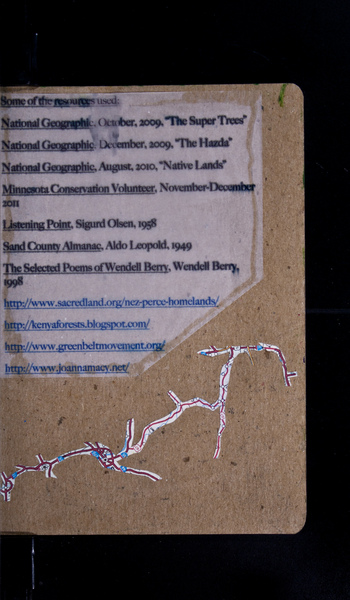 Some of the resources used:
National Geographic, October, 2009, "The Super Trees"
National Geographic, December, 2009, "The Hazda"
National Geographic, August, 2010, "Native Lands"
Minnesota Conservation Volunteer, November-December
2011
Listening Point, Sigurd Olsen, 1958
Sand County Almanac, Aldo Leopold, 1949
The Selected Poems of Wendell Berry, Wendell Berry,
1998
http://www.sacredland.org/nez-perce-homelands/
http://kenyaforests.blogspot.com/
http://www.greenbeltmovement.org/
http://www.joannamacy.net/